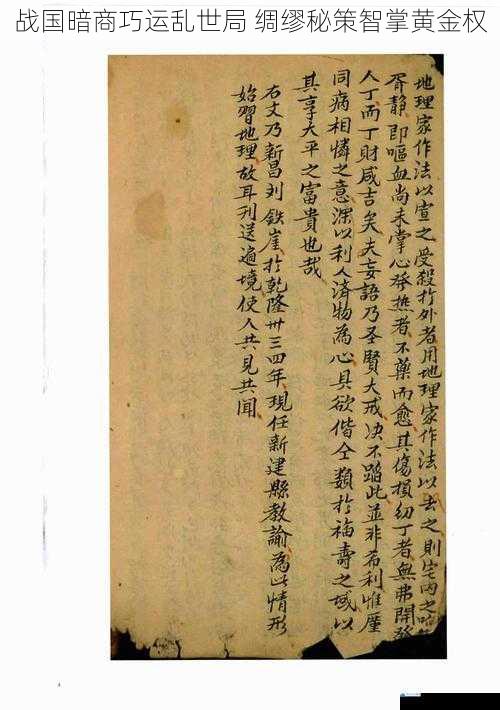 战国暗商巧运乱世局 绸缪秘策智掌黄金权
地理家作法以宣之受殺於外者用地理家作法以去之則宅內之
胥靜即嘔血尚未掌心發热者不藥而愈其傷損幼丁者無弗開發
人丁而丁財咸吉矣夫妄語乃圣賢大戒决不蹈此並非希利惟廑
同病相憐之意深以利人濟物為心具欲偕仝類於福壽之域以
其享太平之富貴也哉
右文乃新昌刘鉄崖於乾隆卅三四年現任新建縣教諭為此情形
始習地理故耳刊送遍境使人共見共聞